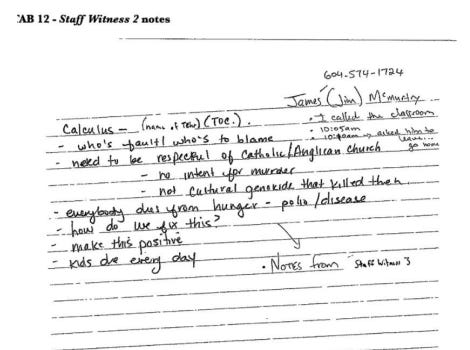 TAB 12 - Staff Witness 2 notes
604-574-1724
James (Jim) McMurtry
• I called the classroom
• 10:05am
• 10:40am → asked him to leave...
go home
Calculus - (name of Tchr) (TOC.)
- who's fault/who's to blame
- need to be respectful of Catholic/Anglican church
- no intent for murder
- not cultural genocide that killed them
- everybody dies from hunger - polio/disease
- how do we fix this?
- make this positive
- kids die every day
• Notes from Staff Witness 3